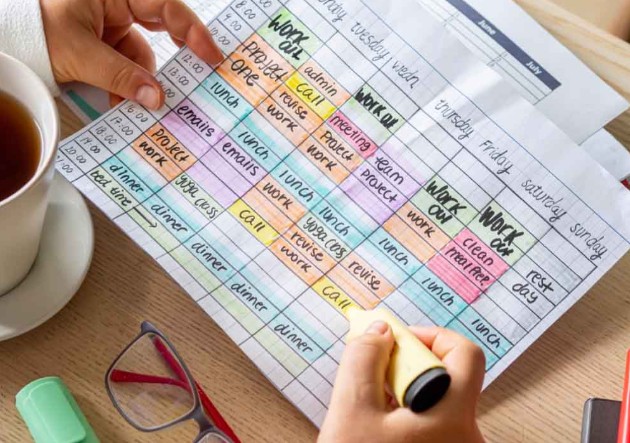 June
July
tuesday
thursday
Friday
saturday
sunday
8.00
9.00
10.00
12.00
13.00
17.00
18.00
19.00
20.00
21.00
WORK
OUT
PROJECT
ONE
lunch
emails
PROJECT
WORK
dinner
bed time
admin
Call
revise
WORK
lunch
emails
yoga class
dinner
WORK OUT
meeting
PROJECT
WORK
lunch
WORK
call
dinner
team
PROJECT
lunch
yoga class
revise
WORK
dinner
WORK
OUT
WORK
lunch
revise
Call
dinner
WORK
OUT
clean
meal prep
lunch
rest
day
lunch